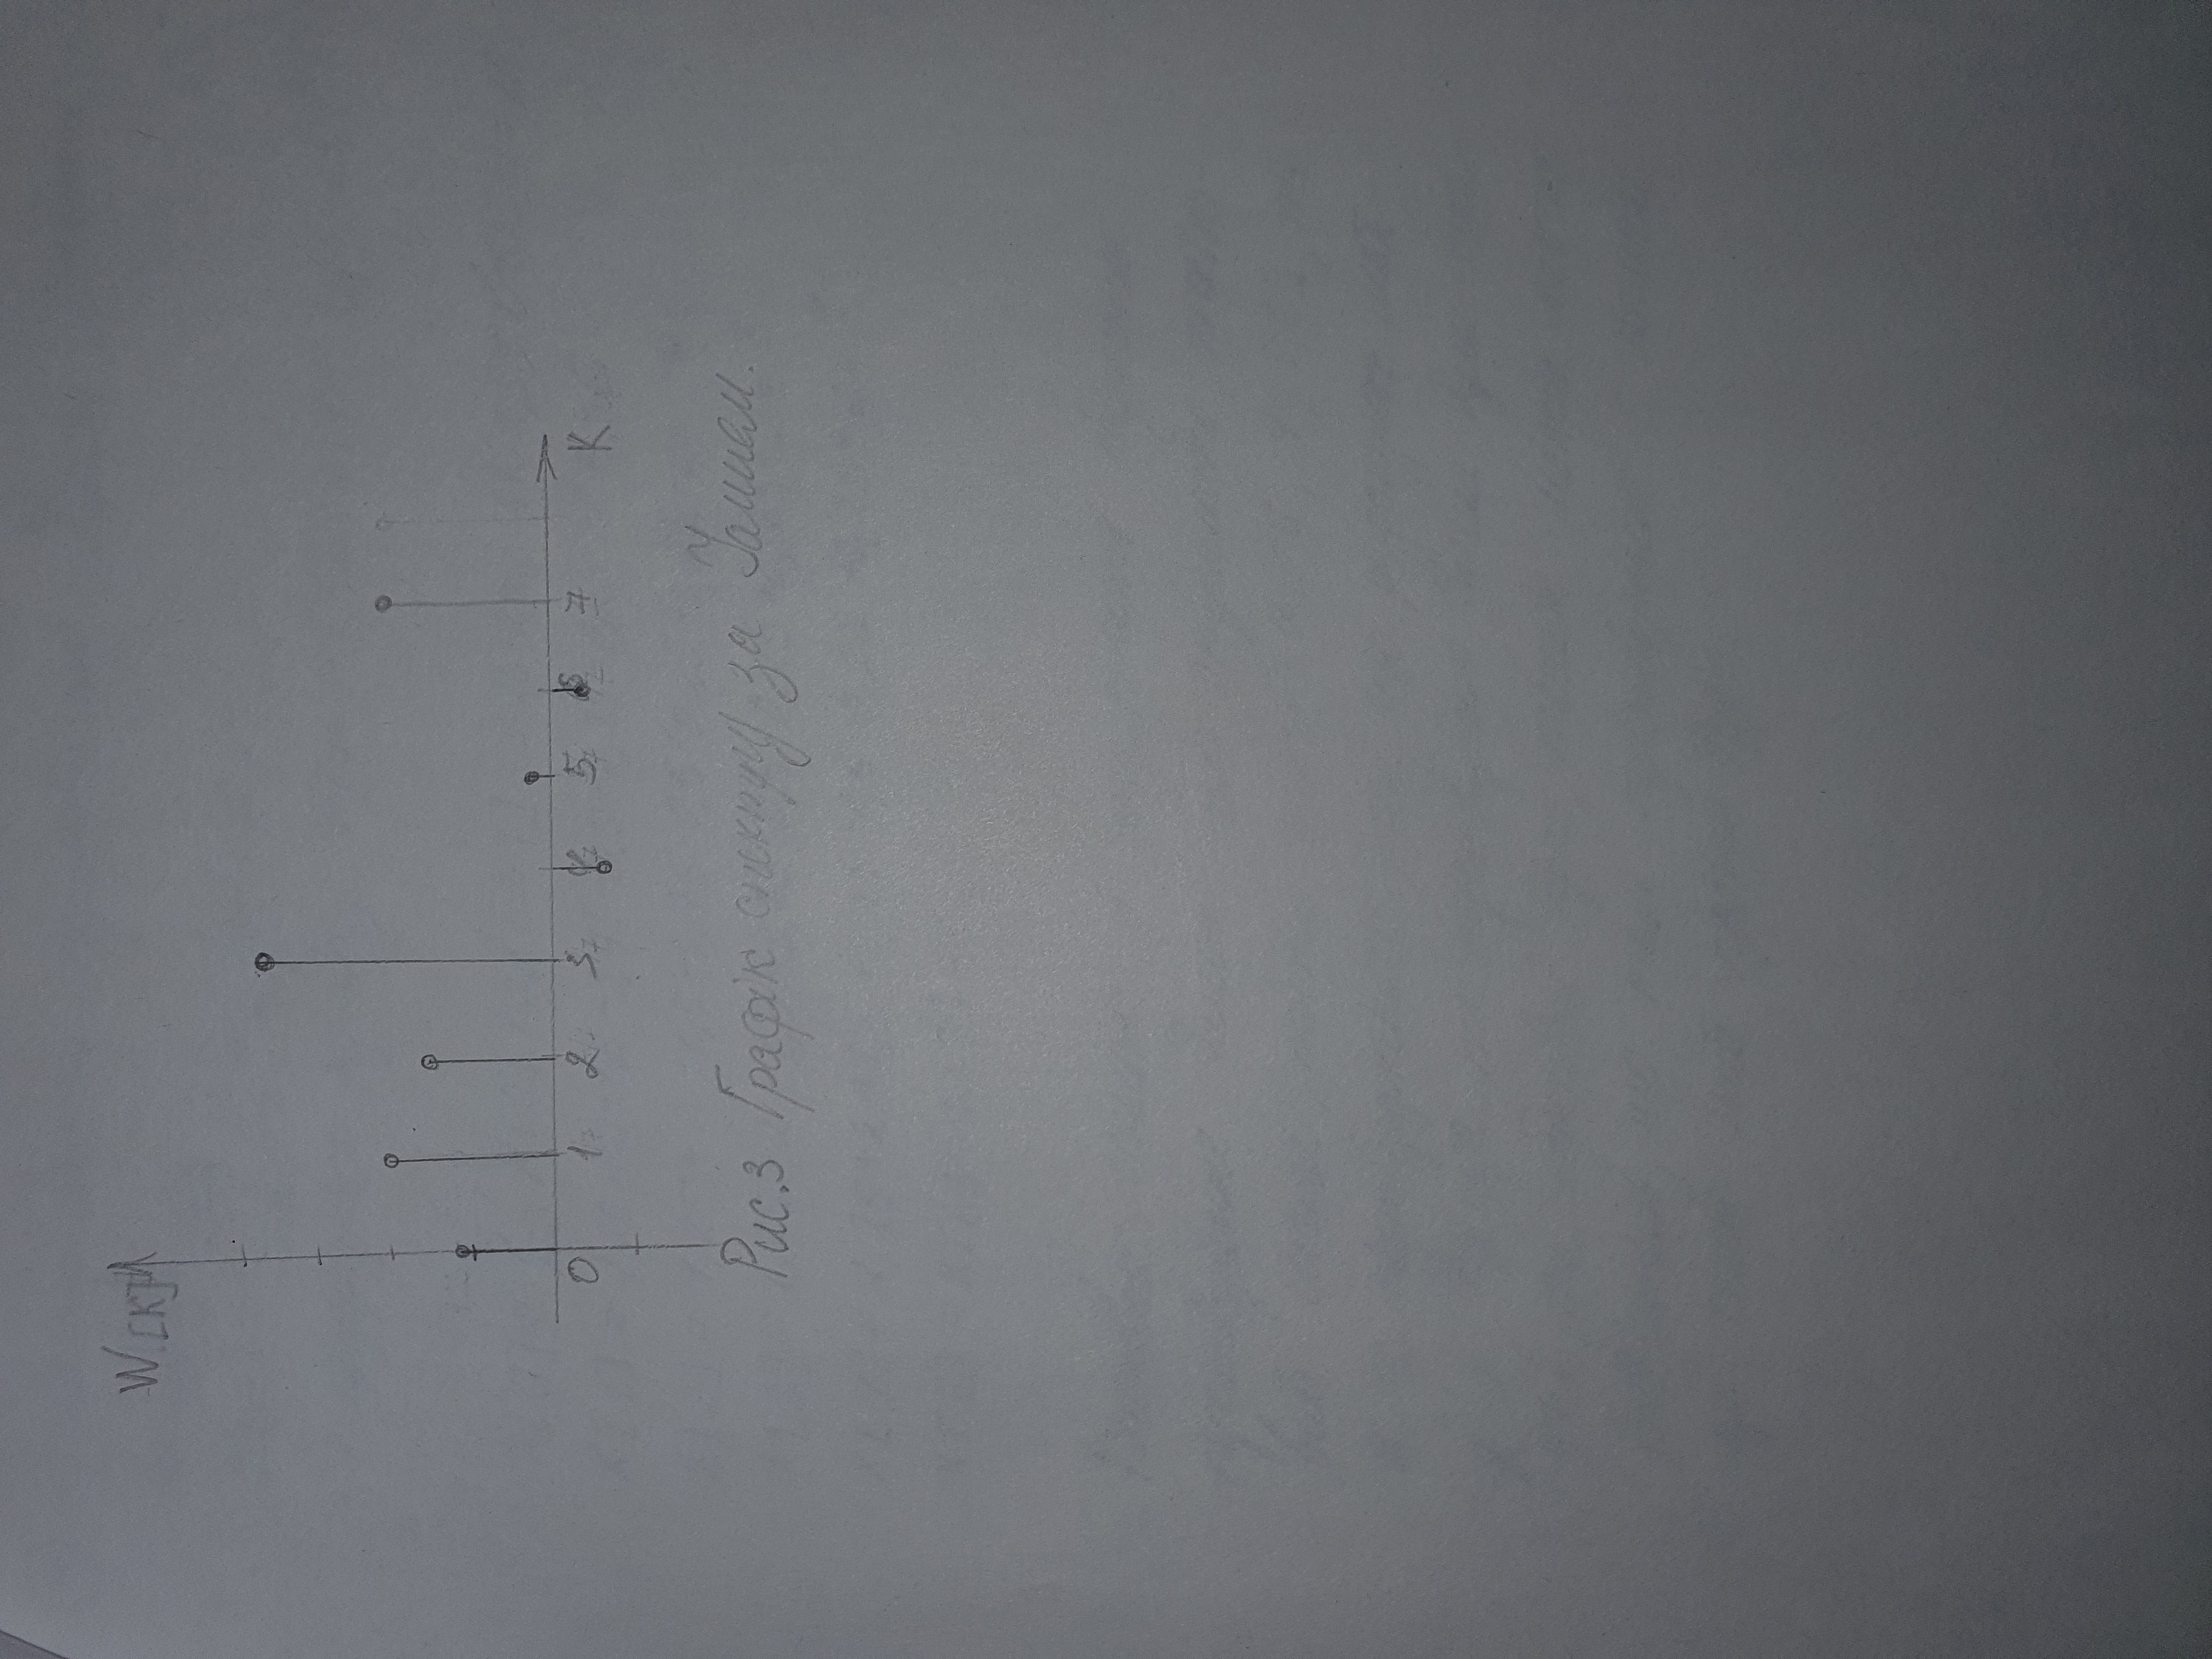 W[K]
0 1 2 3 4 5 6 7 K
Рис.3 Графік спектру за Уолшем.